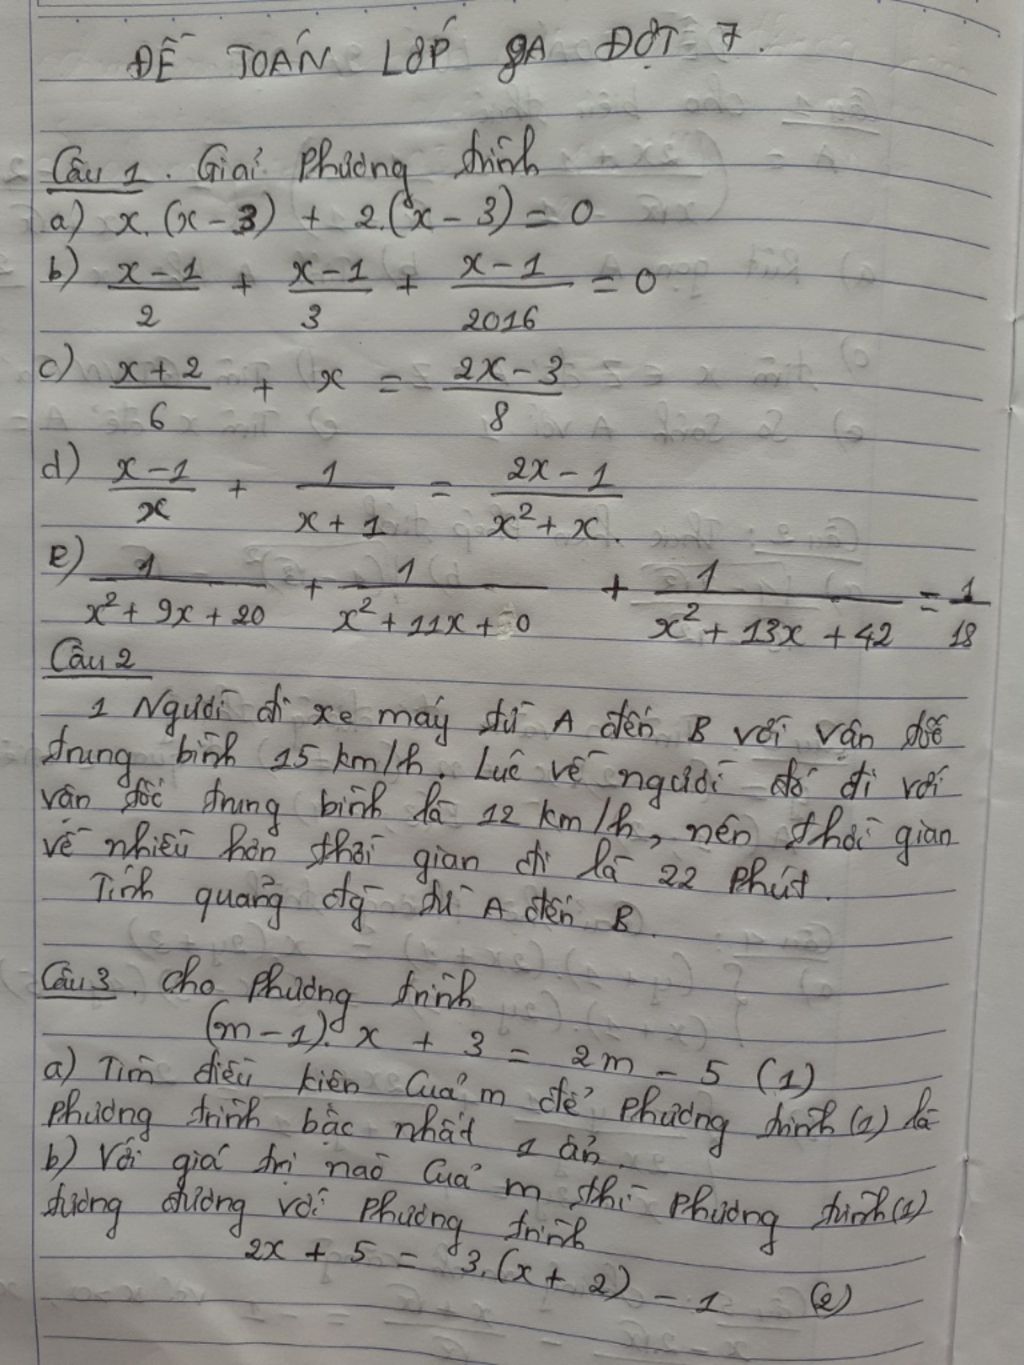 ĐỀ TOÁN LỚP 9A ĐỢT 7.
Câu 1. Giải phương trình
a) x.(x-3) + 2.(x-3) = 0
b) (x-1)/2 + (x-1)/3 + (x-1)/2016 = 0
c) (x+2)/6 + x = (2x-3)/8
d) (x-1)/x + 1/(x+1) = (2x-1)/(x²+x).
e) 1/(x²+9x+20) + 1/(x²+11x+ 0) + 1/(x²+13x+42) = 1/18
Câu 2
1 Người đi xe máy từ A đến B với vận tốc
trung bình 15 km/h. Lúc về người đó đi với
vận tốc trung bình là 12 km/h, nên thời gian
về nhiều hơn thời gian đi là 22 phút.
Tính quảng đg từ A đến B.
Câu 3. Cho phương trình
(m-1).x + 3 = 2m - 5 (1)
a) Tìm điều kiện của m để phương trình (1) là
phương trình bậc nhất 1 ẩn.
b) Với giá trị nào của m thì phương trình (1)
tương đương với phương trình
2x + 5 = 3.(x+2) - 1 (2)